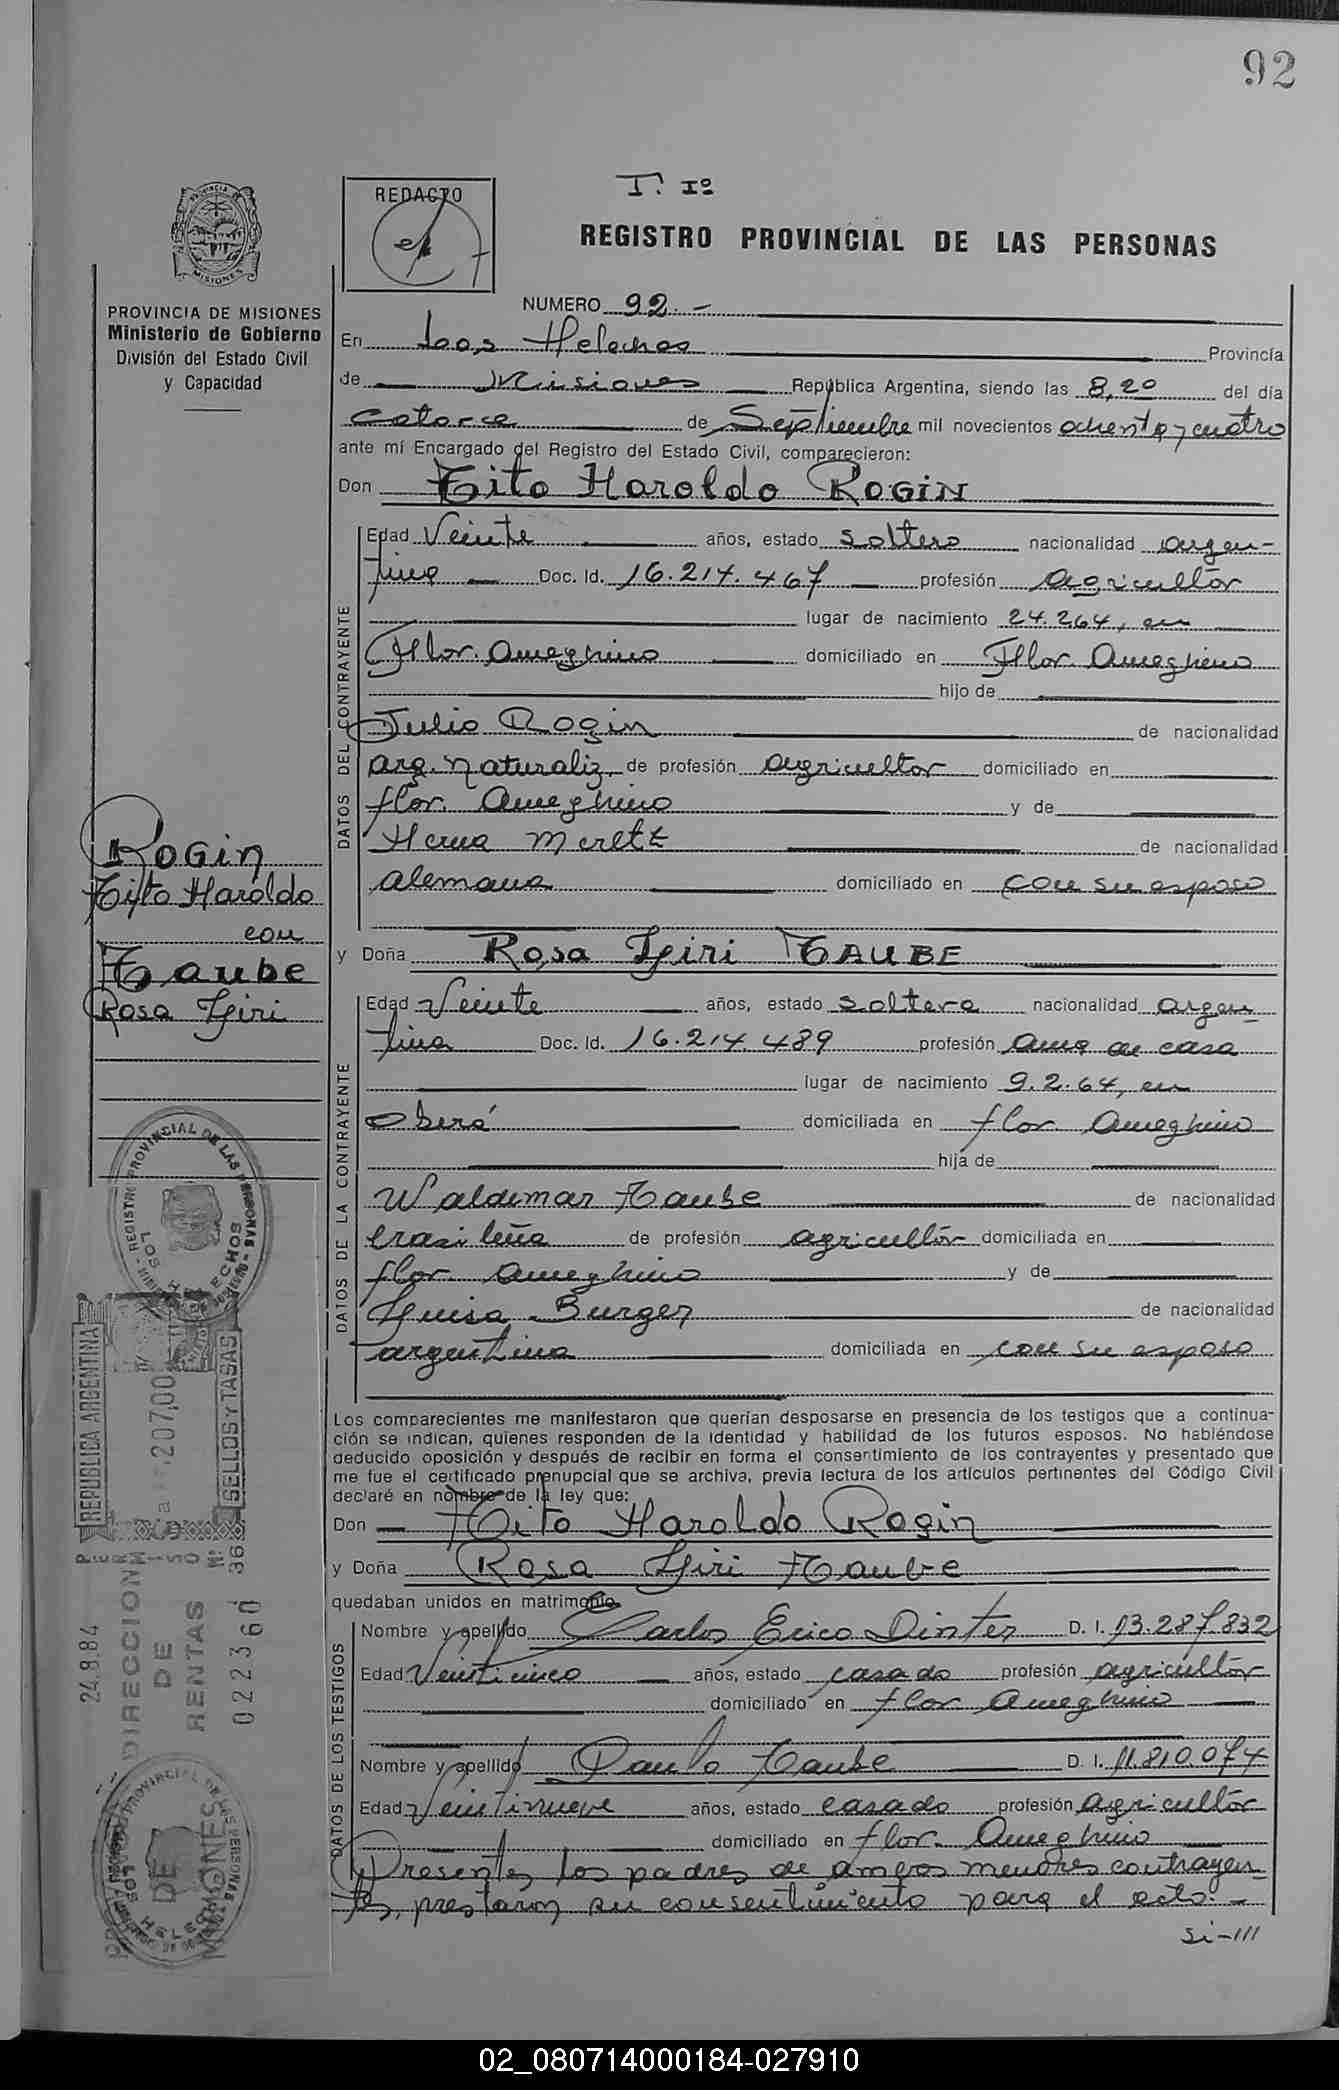 92
T. Iº
REDACTO
REGISTRO PROVINCIAL DE LAS PERSONAS
PROVINCIA DE MISIONES
Ministerio de Gobierno
División del Estado Civil
y Capacidad
NUMERO 92.-
En Los Helechos Provincia
de Misiones República Argentina, siendo las 8,20 del día
catorce de Septiembre mil novecientos ochenta y cuatro
ante mí Encargado del Registro del Estado Civil, comparecieron:
Don Tito Haroldo ROGIN
DATOS DEL CONTRAYENTE
Edad Veinte años, estado soltero nacionalidad argen-
tina Doc. Id. 16.214.467 profesión agricultor
lugar de nacimiento 24.2.64, en
Flor. Ameghino domiciliado en Flor. Ameghino
hijo de
Julio Rogin de nacionalidad
arg. naturaliz. de profesión agricultor domiciliado en
flor. Ameghino y de
Herna Meretz de nacionalidad
alemana domiciliado en con su esposo
ROGIN
Tito Haroldo
con
Taube
Rosa Yiri
y Doña Rosa Yiri TAUBE
DATOS DE LA CONTRAYENTE
Edad Veinte años, estado soltera nacionalidad argen
tina Doc. Id. 16.214.489 profesión ama de casa
lugar de nacimiento 9.2.64, en
Oberá domiciliada en flor. Ameghino
hija de
Waldimar Taube de nacionalidad
brasileña de profesión agricultor domiciliada en
flor. Ameghino y de
Luisa Burger de nacionalidad
argentina domiciliada en con su esposo
Los comparecientes me manifestaron que querían desposarse en presencia de los testigos que a continua-
ción se indican, quienes responden de la identidad y habilidad de los futuros esposos. No habiéndose
deducido oposición y después de recibir en forma el consentimiento de los contrayentes y presentado que
me fue el certificado prenupcial que se archiva, previa lectura de los artículos pertinentes del Código Civil
declaré en nombre de la ley que:
Don Tito Haroldo Rogin
y Doña Rosa Yiri Taube
quedaban unidos en matrimonio
DATOS DE LOS TESTIGOS
Nombre y apellido Carlos Erico Dinter D. I. 13.287.832
Edad Veinticinco años, estado casado profesión agricultor
domiciliado en flor Ameghino
Nombre y apellido Paulo Taube D. I. 11.810.074
Edad Veintinueve años, estado casado profesión agricultor
domiciliado en flor. Ameghino
Presentes los padres de ambos menores contrayen
tes, prestaron su consentimiento para el acto.-
si-///
REGISTRO PROVINCIAL DE LAS PERSONAS
LOS HELECHOS
REPUBLICA ARGENTINA
207,00
SELLOS Y TASAS
PERMISO Nº 36
24.8.84
DIRECCION
DE
RENTAS
02236
60
DE
MISIONES
02_080714000184-027910